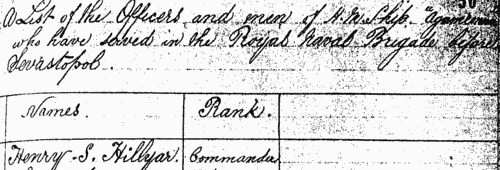 A List of the Officers and men of H.M. Ship "Agamemnon
who have served in the Royal Naval Brigade before
Sevastopol.
Names. Rank.
Henry S. Hillyar. Commander